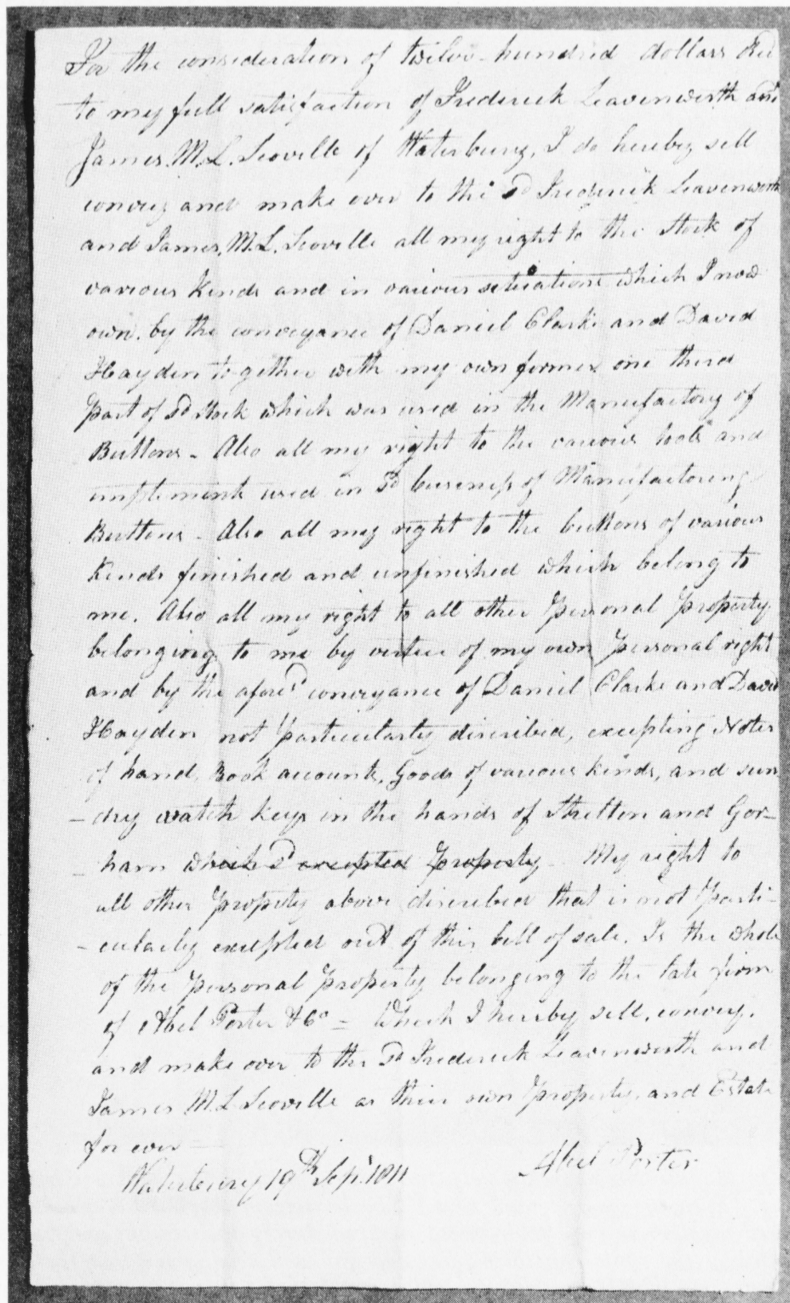 For the consideration of twelve hundred dollars Recd
to my full satisfaction of Frederick Leavenworth and
James M.L. Scoville of Waterbury, I do hereby sell
convey and make over to the sd Frederick Leavenworth
and James M.L. Scoville all my right to the Stock of
various Kinds and in various situations which I now
own, by the conveyance of Daniel Clarke and David
Hayden together with my own former one third
Part of sd Stock which was used in the Manufactory of
Buttons - Also all my right to the various tools and
implements used in sd business of Manufactoring
Buttons - Also all my right to the buttons of various
Kinds finished and unfinished which belong to
me. Also all my right to all other Personal Property
belonging to me by virtue of my own Personal right
and by the aforesd conveyance of Daniel Clarke and David
Hayden not Particularly discribed, excepting Notes
of hand, Book accounts, Goods of various kinds, and sun
-dry watch keys in the hands of Stretton and Gor-
-ham which sd excepted Property - My right to
all other Property above discribed that is not Parti-
-cularly excepted out of this bill of sale, Is the whole
of the Personal Property belonging to the late firm
of Abel Porter & Co = Which I hereby sell, convey,
and make over to the sd Frederick Leavenworth and
James M.L. Scoville as their own Property, and Estate
for ever -
Waterbury 19th Sept. 1811 Abel Porter